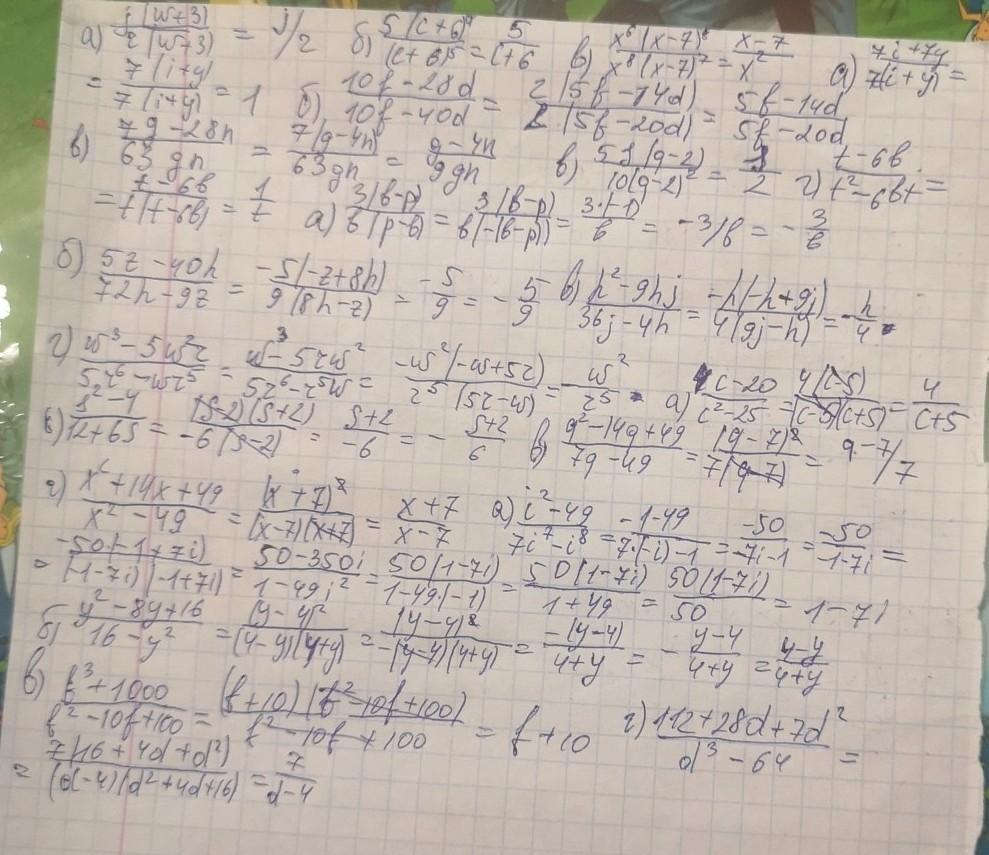 а) j(w+3)/2(w+3) = j/2 б) 5(c+6)⁴/(c+6)⁵ = 5/c+6 в) x⁶(x-7)⁸/x⁸(x-7)⁷ = x-7/x² а) 7i+7y/7(i+y) =
= 7(i+y)/7(i+y) = 1 б) 10f-28d/10f-40d = 2(5f-14d)/2(5f-20d) = 5f-14d/5f-20d
в) 7g-28n/63gn = 7(g-4n)/63gn = g-4n/9gn в) 5(g-2)/10(g-2)² = /2 г) t-6b/t²-6bt =
= t-6b/t(t-6b) = 1/t а) 3(b-p)/b(p-b) = 3(b-p)/b(-(b-p)) = 3·(-1)/b = -3/b = -3/b
б) 5z-40h/72h-9z = -5(-z+8h)/9(8h-z) = -5/9 = -5/9 в) h²-9hj/36j-4h = -h(-h+9j)/4(9j-h) = -h/4
г) w³-5w²z/5z⁶-wz⁵ = w³-5zw²/5z⁶-z⁵w = -w²(-w+5z)/z⁵(5z-w) = -w²/z⁵ а) 4c-20/c²-25 = 4(c-5)/(c-5)(c+5) = 4/c+5
s²-4/12+6s = (s-2)(s+2)/-6(s-2) = s+2/-6 = -s+2/6 в) q²-14q+49/7q-49 = (q-7)²/7(q-7) = q-7/7
г) x²+14x+49/x²-49 = (x+7)²/(x-7)(x+7) = x+7/x-7 а) i²-49/7i⁷-i⁸ = -1-49/7·(-i)-1 = -50/-7i-1 = -50/-1-7i =
= -50(-1+7i)/(-1-7i)(-1+7i) = 50-350i/1-49i² = 50(1-7i)/1-49·(-1) = 50(1-7i)/1+49 = 50(1-7i)/50 = 1-7i
б) y²-8y+16/16-y² = (y-4)²/(4-y)(4+y) = (y-4)²/-(y-4)(4+y) = -(y-4)/4+y = -y-4/4+y = 4-y/4+y
в) f³+1000/f²-10f+100 = (f+10)(f²-10f+100)/f²-10f+100 = f+10 г) 112+28d+7d²/d³-64 =
= 7(16+4d+d²)/(d-4)(d²+4d+16) = 7/d-4